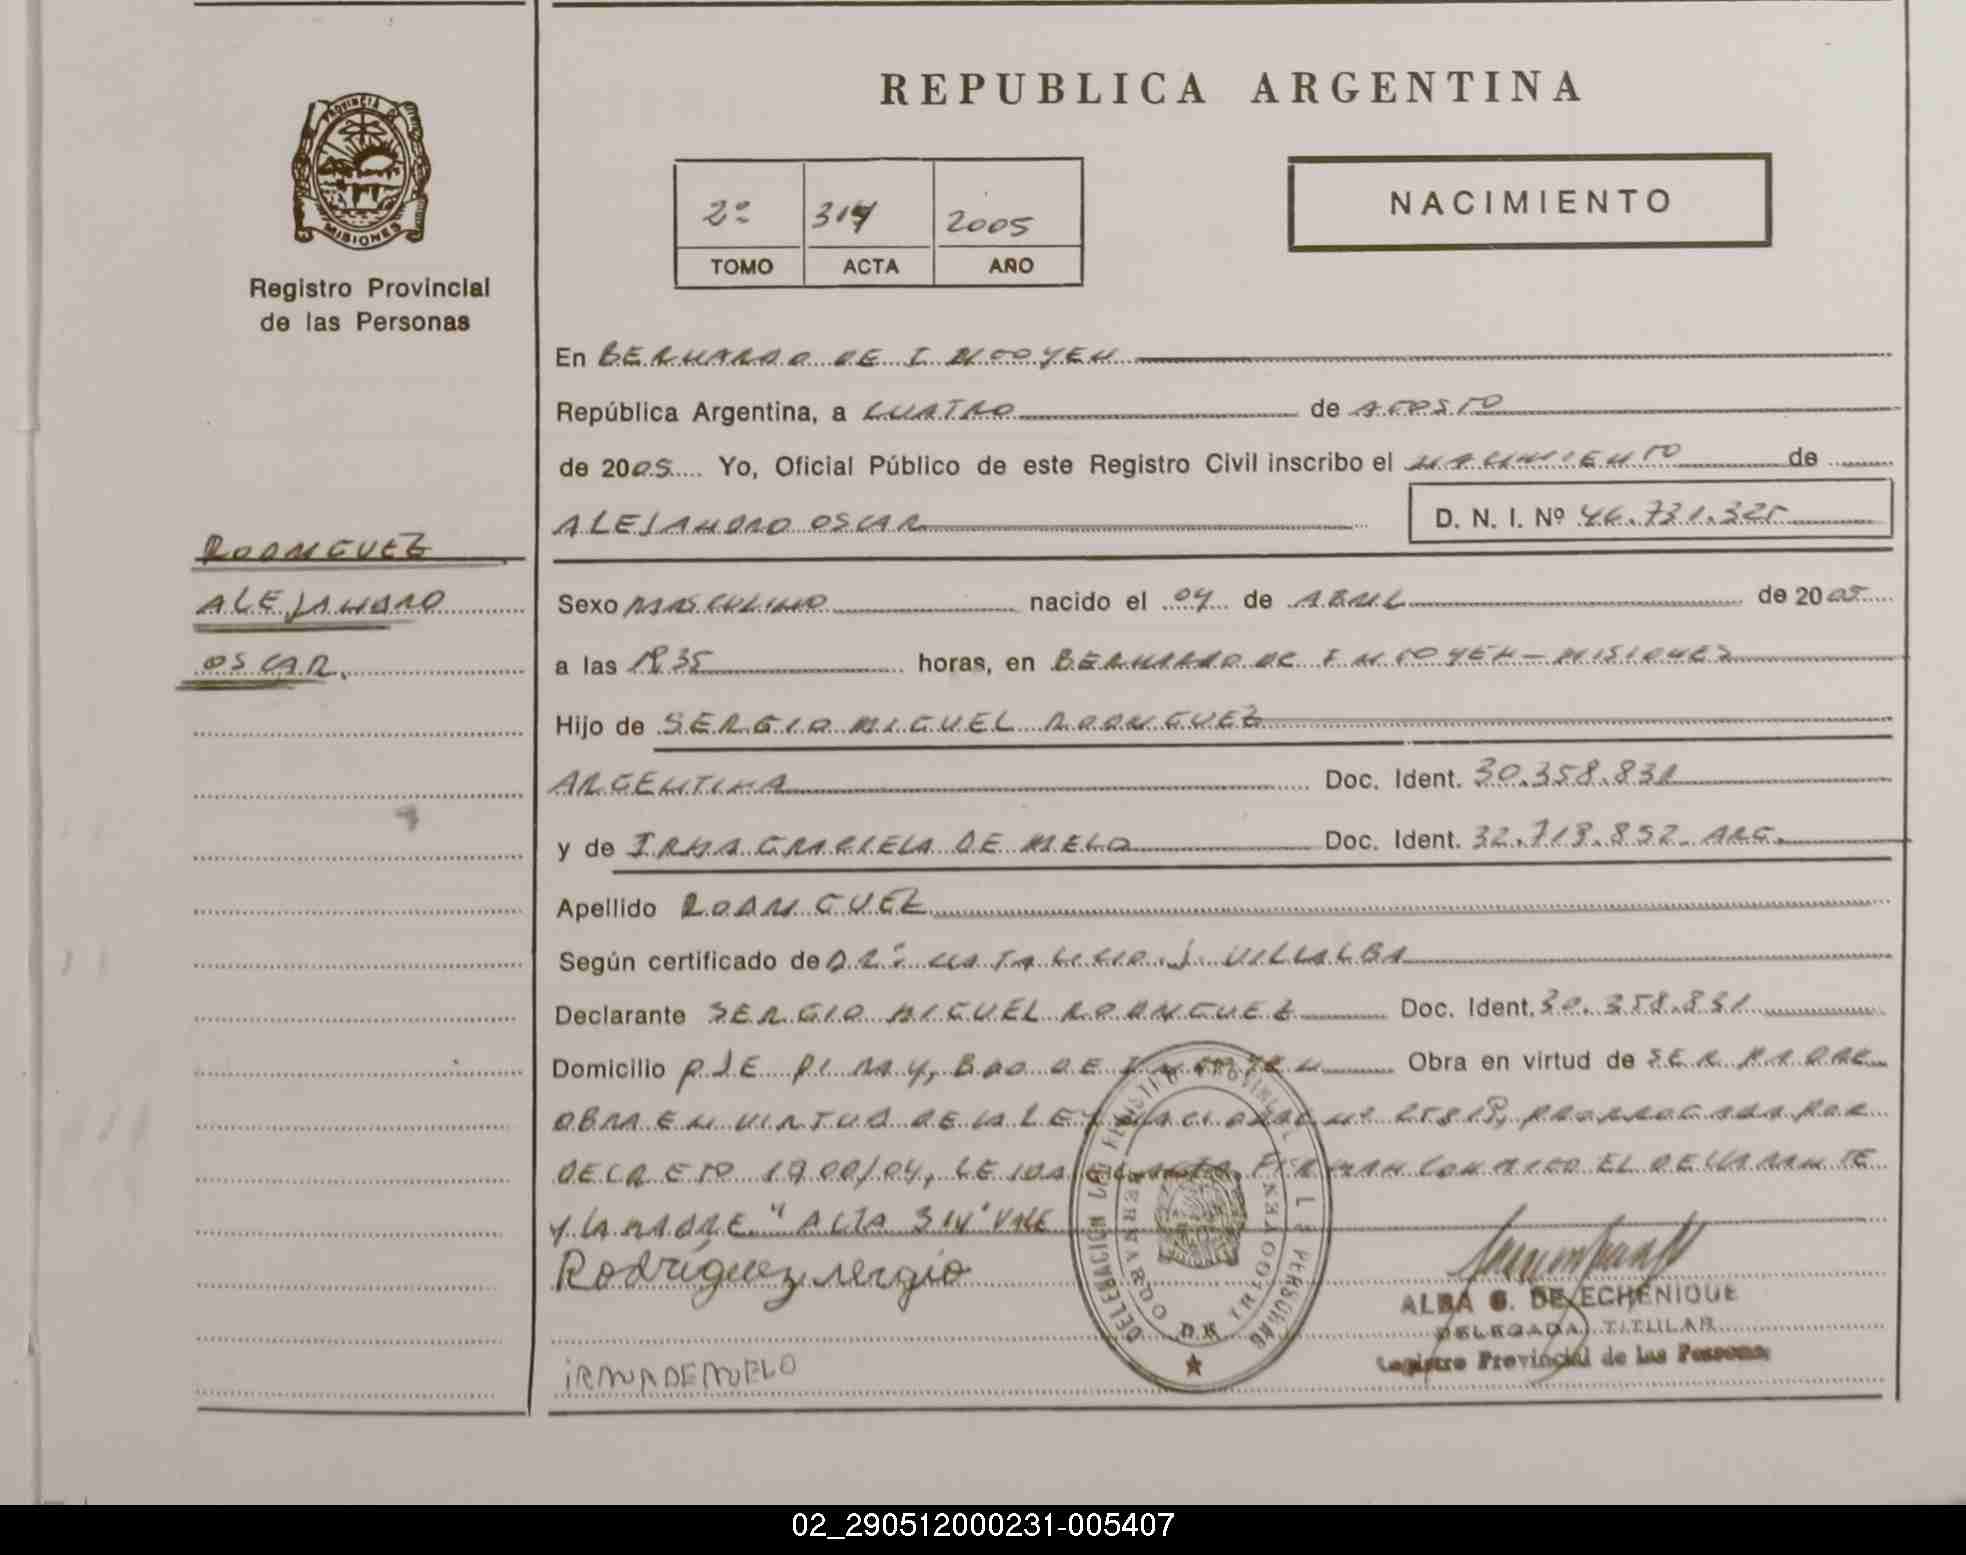 PROVINCIA DE
MISIONES
Registro Provincial
de las Personas
RODRIGUEZ
ALEJANDRO
OSCAR.
REPUBLICA ARGENTINA
2º 314 2005
TOMO ACTA AÑO
NACIMIENTO
En BERNARDO DE IRIGOYEN
República Argentina, a CUATRO de AGOSTO
de 2005 Yo, Oficial Público de este Registro Civil inscribo el NACIMIENTO de
ALEJANDRO OSCAR D. N. I. Nº 46.731.325
Sexo MASCULINO nacido el 04 de ABRIL de 2005
a las horas, en BERNARDO DE IRIGOYEN - MISIONES
Hijo de SERGIO MIGUEL RODRIGUEZ
ARGENTINA Doc. Ident. 30.358.831
y de IRMA GRACIELA DE MELO Doc. Ident. 32.713.852. ARG.
Apellido RODRIGUEZ
Según certificado de DR: NATALICIO J. VILLALBA
Declarante SERGIO MIGUEL RODRIGUEZ Doc. Ident. 30.358.831
Domicilio PJE PIRAY, BDO DE IRIGOYEN Obra en virtud de SER PADRE
OBRA EN VIRTUD DE LA LEY NACIONAL Nº 25819, PRORROGADA POR
DECRETO 1900/04, LEIDA EL ACTA, FIRMAN CONMIGO EL DECLARANTE
Y LA MADRE. "ACTA 314" VALE
Rodríguez sergio
iRMA DE MELO
DELEGACION DEL REGISTRO PROVINCIAL DE LAS PERSONAS
BERNARDO DE IRIGOYEN
ALBA G. DE ECHENIQUE
DELEGADA TITULAR
Registro Provincial de las Personas
02_290512000231-005407